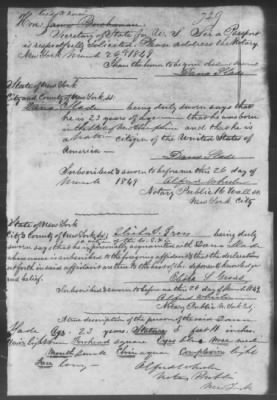 Hon. James Buchanan
729
Secretary of State for U. S. Sir a Passport
is respectfully solicited. Please address the Notary
New York March 26th 1849
I have the honor to be your obedient servant
Dana Slade
State of New York
City and County of New York, SS
Dana Slade being duly sworn says that
he is 23 years of age that he was born
in the State of New Hampshire and that he is
a citizen of the United States of
America
Dana Slade
Subscribed & sworn to before me this 26 day
of March 1849
Notary Public 16 Wall St
New York City
State of New York
City & County of New York, SS
Elisha S. being duly
sworn says that he is personally acquainted with Dana Slade
whose name is subscribed to the foregoing affidavit & that the declaration
set forth in said affidavit are true to the best of this deponent knowledge
and belief.
Subscribed & sworn to before me this 26 day of March 1849
Alfred
Notary Public 16 Wall St.
A true description of the person of the said Dana
Slade Age 23 years, Stature 5 feet inches
Hair light brown Forehead square Eyes blue Nose
Mouth small Chin square Complexion light
Face long
Alfred
Notary Public
New York